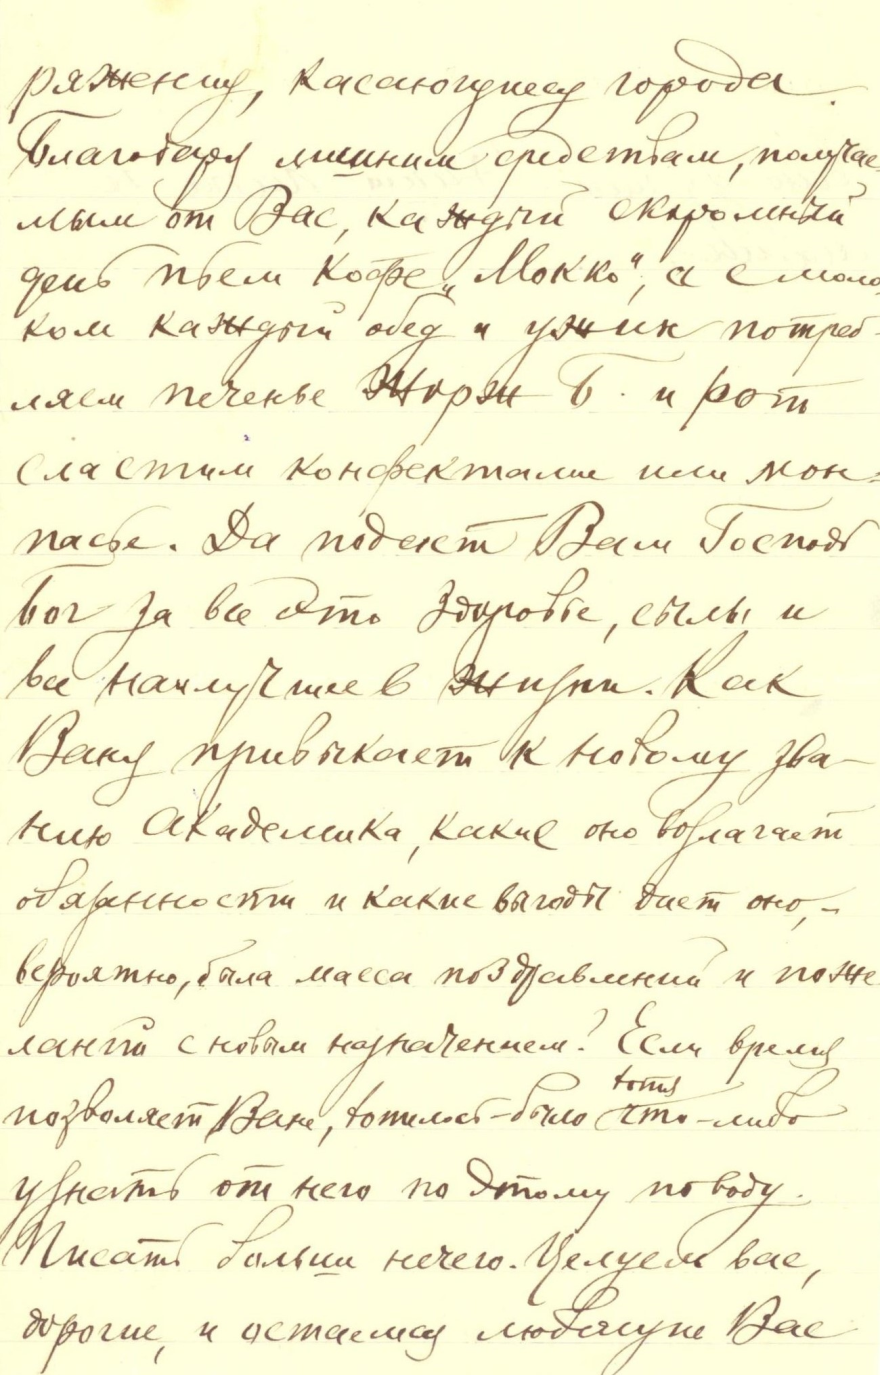 ряжения, касающиеся города.
Благодаря лишним средствам, получае-
мым от Вас, каждый скоромный
день пьем кофе „Мокко", а с моло-
ком каждый обед и ужин потреб-
ляем печенье Жорж Б. и рот
сластим конфектами или мон-
пасье. Да подаст Вам Господь
Бог за все это здоровье, силы и
все наилучшее в жизни. Как
Ваня привыкает к новому зва-
нию Академика, какие оно возлагает
обязанности и какие выгоды дает оно, –
вероятно, была масса поздравлений и поже-
ланий с новым назначением? Если время
позволяет Ване, хотелось-было хотя что-либо
узнать от него по этому поводу.
Писать больше нечего. Целуем вас,
дорогие, и остаемся любящие Вас